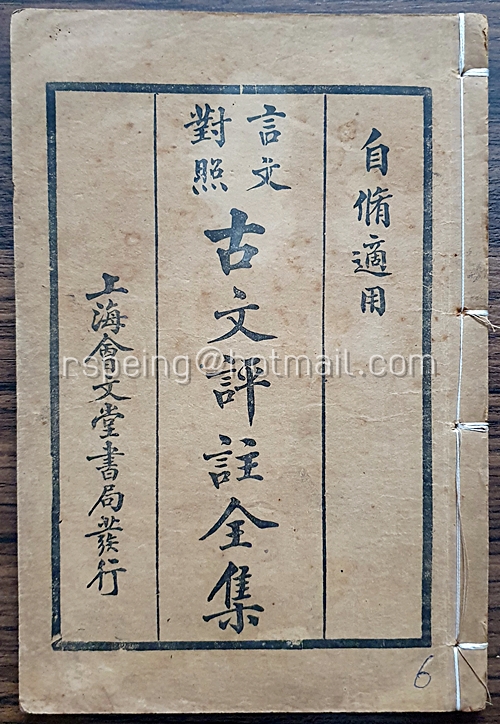 自脩適用
言文
對照
古文評註全集
上海會文堂書局發行
rspeing@hotmail.com
6